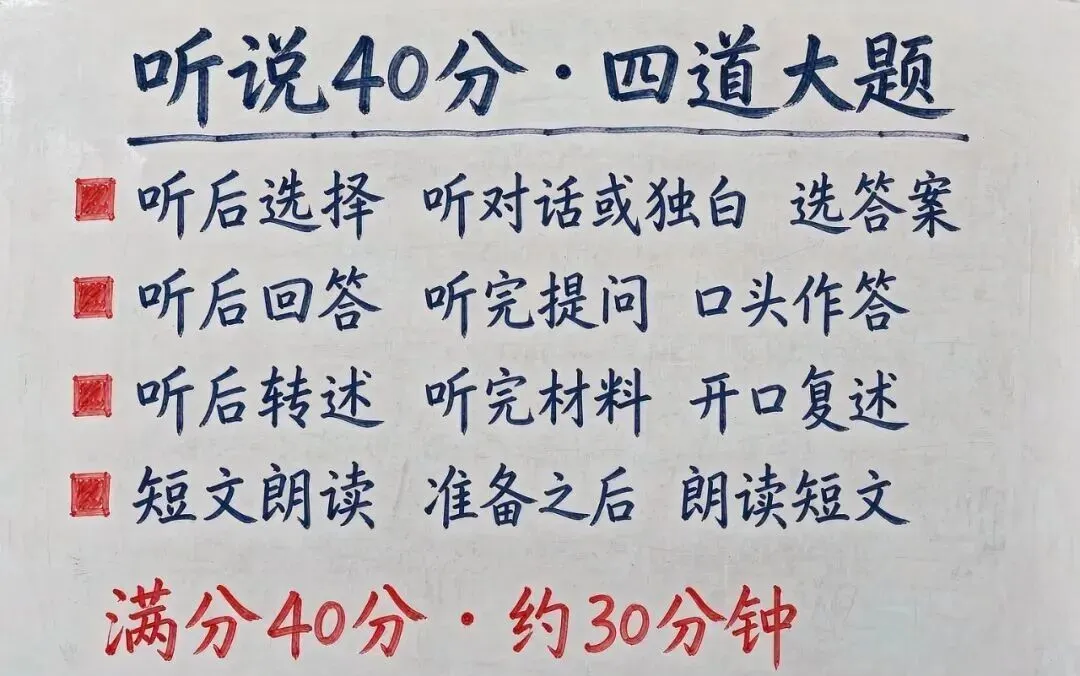 听说40分·四道大题
听后选择 听对话或独白 选答案
听后回答 听完提问 口头作答
听后转述 听完材料 开口复述
短文朗读 准备之后 朗读短文
满分40分·约30分钟